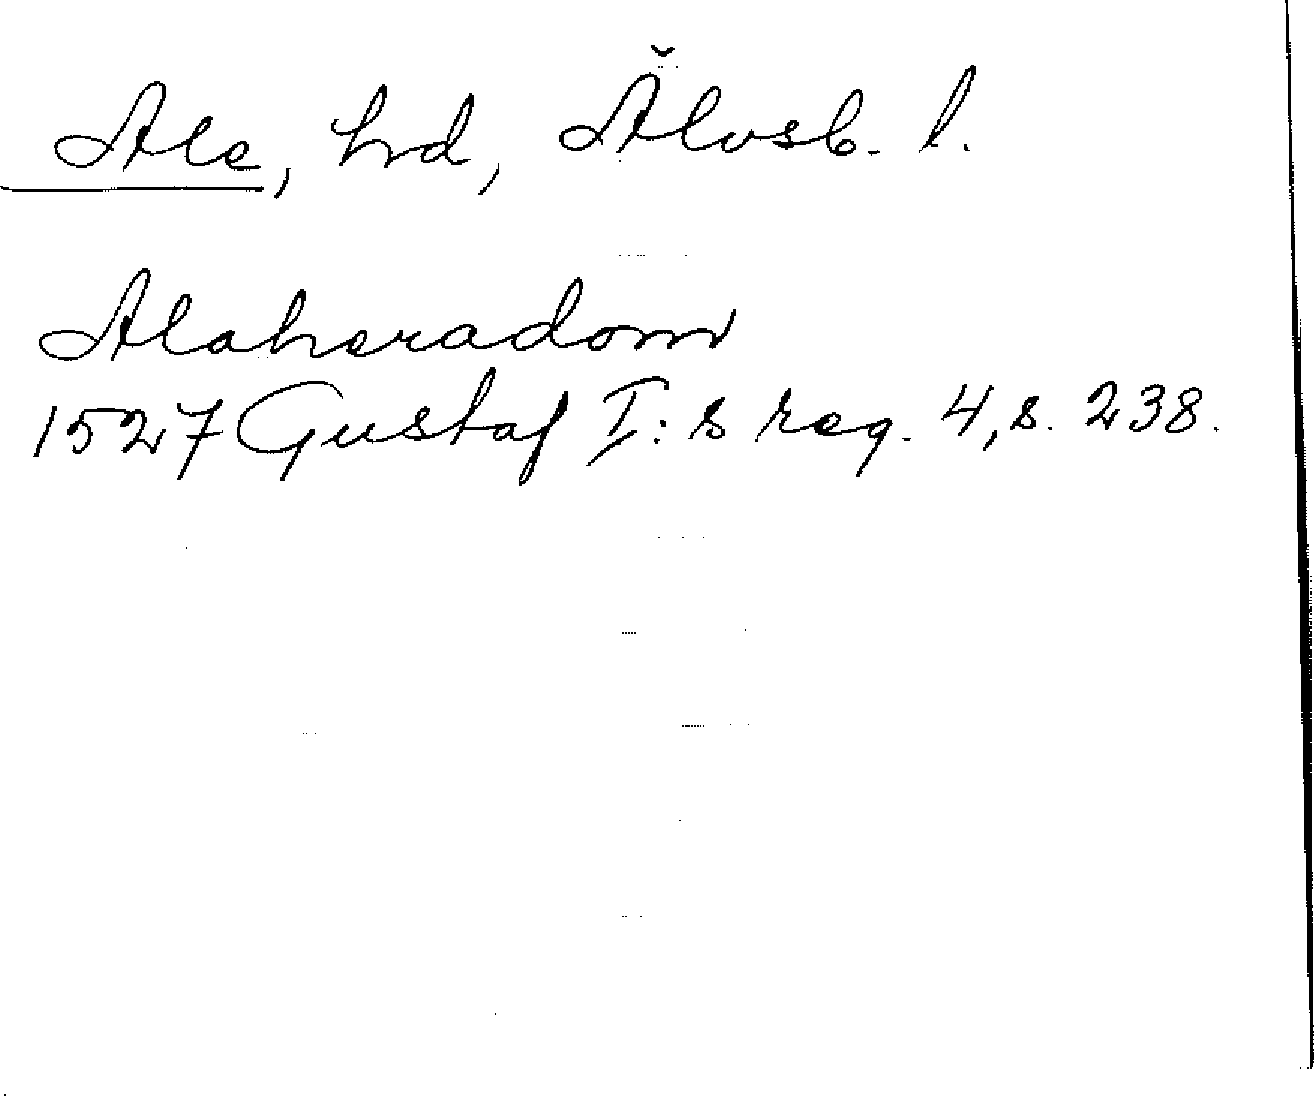 Ale, hd, Älvsb. l.
Alaheradom
1527 Gustaf I:s reg. 4, s. 238.